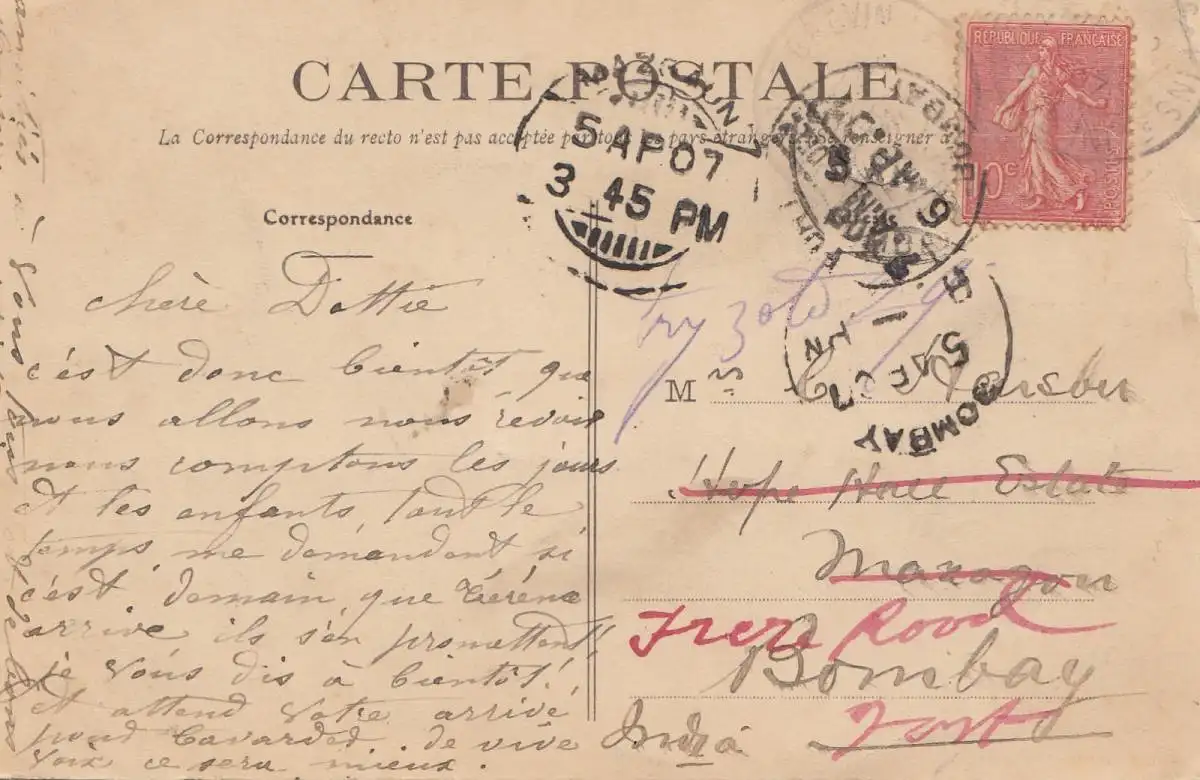 CARTE POSTALE
La Correspondance du recto n'est pas acceptée par tous les pays étrangers. Se renseigner à
RÉPUBLIQUE FRANÇAISE
10c
POSTES
MAZAGON
5 AP 07
3 45 PM
BOMBAY
5 AP 07
Correspondance
chère Dottie
c'ést donc bientôt que
nous allons nous revoir
nous comptons les jours
et les enfants, tout le
temps, me demandent si
c'ést demain, que Térénce
arrive ils s'en promettent,
je vous dis à bientôt!
et attend votre arrivé
pour bavarder. de vive
voix ce sera mieux.
amitiés à vous
try
Mrs C.
Hope Hall Estate
Mazagon
Frere Road
Bombay
Fort
India